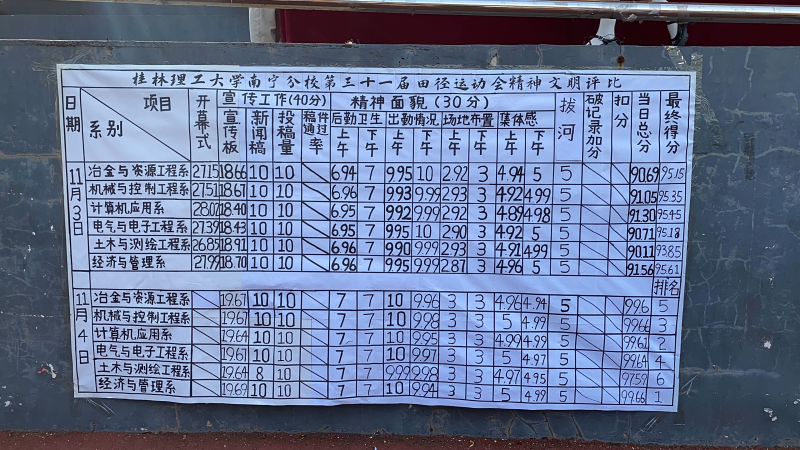 桂林理工大学南宁分校第三十一届田径运动会精神文明评比
日期 项目 系别 开幕式 宣传工作(40分) 宣传板 新闻稿 投稿量 稿件通过率 精神面貌(30分) 后勤卫生 出勤情况 场地布置 集体感 上午 下午 上午 下午 上午 下午 上午 下午 拔河 破记录加分 扣分 当日总分 最终得分
11月3日
冶金与资源工程系 27.15 18.66 10 10 6.94 7 9.95 10 2.92 3 4.94 5 5 90.69 95.15
机械与控制工程系 27.51 18.67 10 10 6.96 7 9.93 9.99 2.93 3 4.92 4.99 5 91.05 95.35
计算机应用系 28.02 18.40 10 10 6.95 7 9.92 9.99 2.92 3 4.89 4.98 5 91.30 95.45
电气与电子工程系 27.39 18.43 10 10 6.95 7 9.95 10 2.90 3 4.92 5 5 90.71 95.18
土木与测绘工程系 26.85 18.91 10 10 6.96 7 9.90 9.99 2.93 3 4.91 4.99 5 90.11 93.85
经济与管理系 27.99 18.70 10 10 6.96 7 9.95 9.99 2.87 3 4.96 5 5 91.56 95.61
排名
11月4日
冶金与资源工程系 19.67 10 10 7 7 10 9.96 3 3 4.96 4.94 5 99.6 5
机械与控制工程系 19.67 10 10 7 7 10 9.98 3 3 5 4.99 5 99.66 3
计算机应用系 19.64 10 10 7 7 10 3 3 4.99 4.99 5 99.61 2
电气与电子工程系 19.67 10 10 7 7 10 9.97 3 3 5 4.97 5 99.64 4
土木与测绘工程系 19.64 8 10 7 7 9.99 9.98 3 3 4.97 4.95 5 97.59 6
经济与管理系 19.69 10 10 7 7 10 9.94 3 3 5 4.99 5 99.66 1